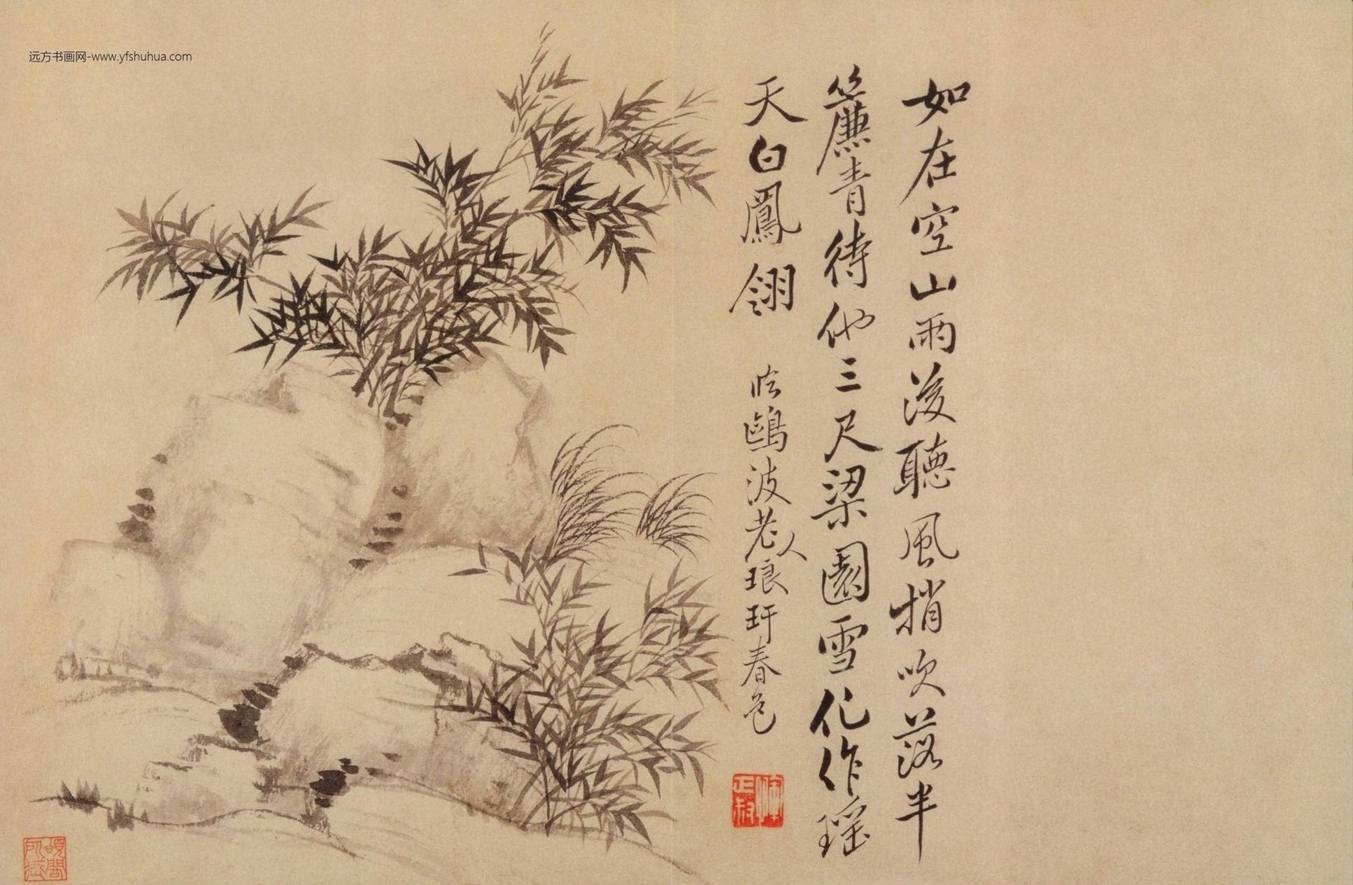 远方书画网-www.yfshuhua.com
如在空山雨後聽風梢吹落半
簾青待他三尺梁園雪化作瑶
天白鳳翎
临鷗波老人琅玕春色
惲正叔